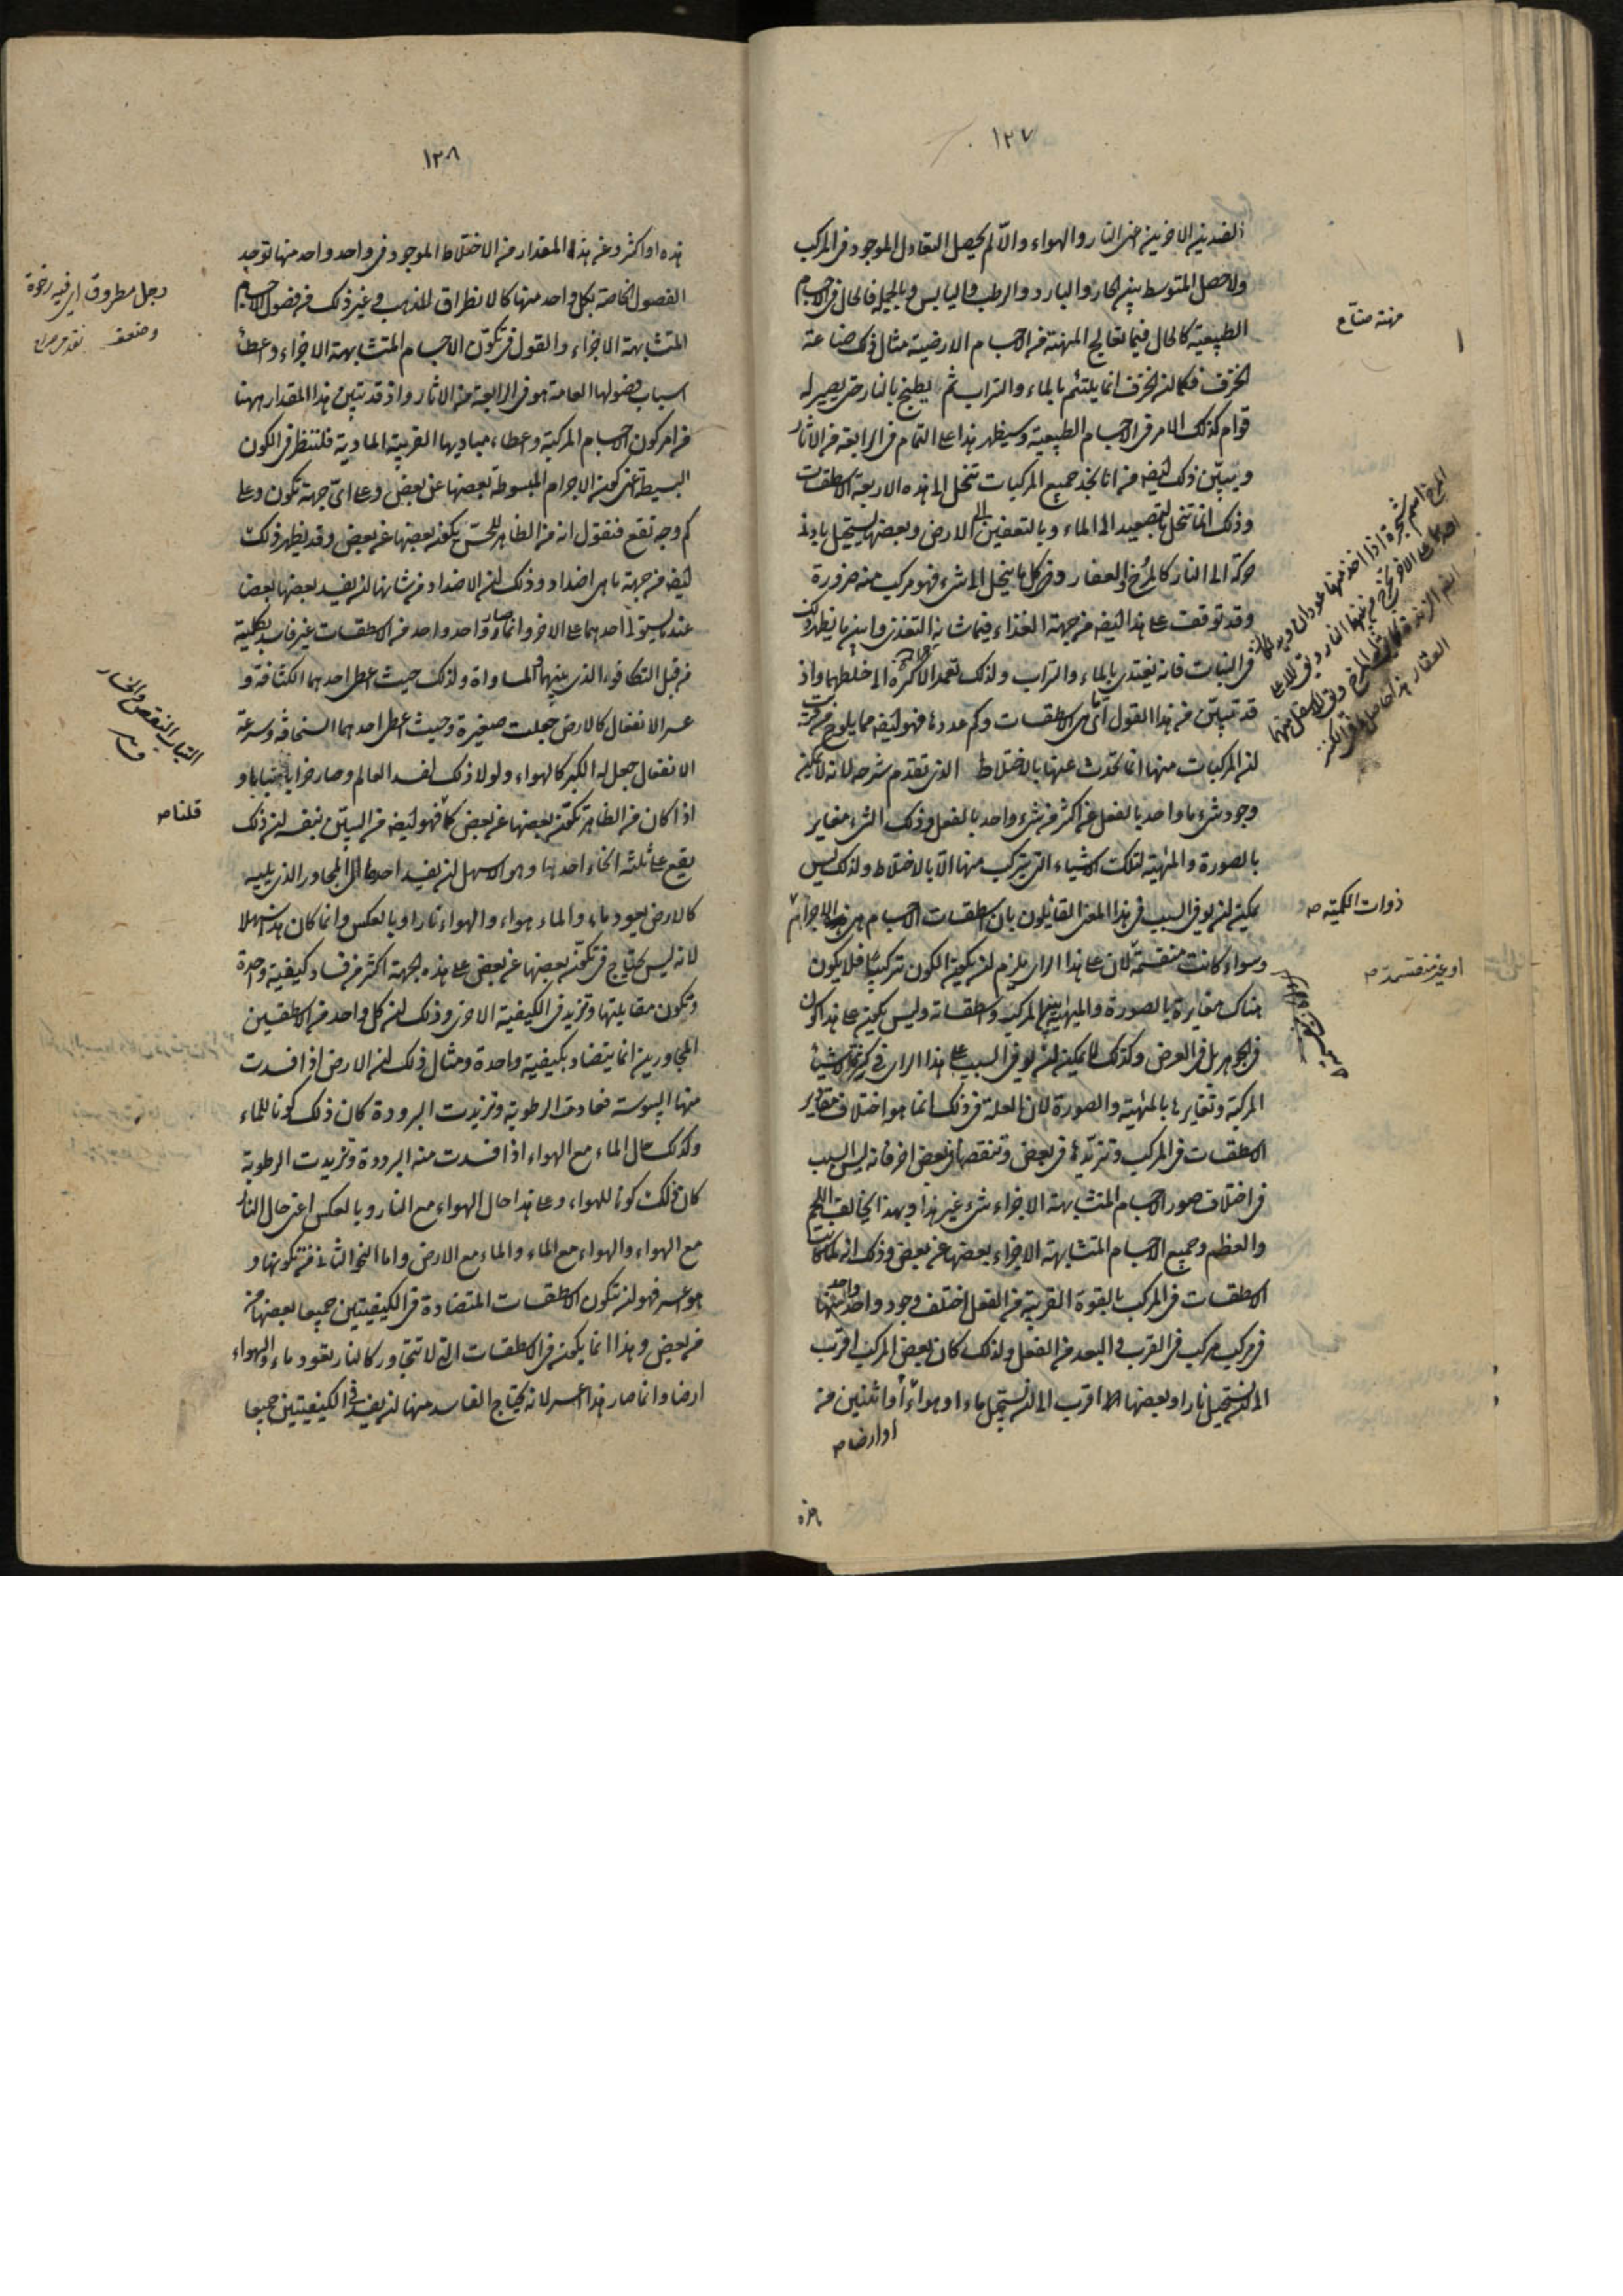 ١٢٧
الضدين الاخرين اعنى النار والهواء والا لم يحصل التعادل الموجود فى المركب
ولا حصل المتوسط بين الحار والبارد والرطب واليابس وبالجملة فالحال فى الاجسام
الطبيعية كالحال فيما تعالج المهنة من الاجسام الارضية مثال ذلك صناعة
الخزف فكما ان الخزف انما يلتئم بالماء والتراب ثم يطبخ بالنار حتى يصير له
قوام كذلك الامر فى الاجسام الطبيعية وسيظهر هذا على التمام فى الرابعة من الاثار
ويبين ذلك ايضا من انا نجد جميع المركبات تنحل الى هذه الاربعة الاسطقسات
وذلك انما تنحل بالتصعيد الى الماء وبالتعفين الى الارض وبعضها يستحيل بادنى
حركة الى النار كالمرخ والعفار وكل ما ينحل الى شىء فهو مركب منه ضرورة
وقد توقفت على هذا ايضا من جهة الغذاء فيما شانه التغذى وابين ما يظهر ذلك
فى النبات فانه يغتذى بالماء والتراب ولذلك تعمد الاكرة الى خلطهما واذ
قد تبين من هذا القول اى هى الاسطقسات وكم عددها فهو ايضا مما يلوح من قرب
ان المركبات منها انما تحدث عنها بالاختلاط الذى تقدم شرحه لانه لا يمكن
وجود شىء ما واحد بالفعل عن اكثر من شىء واحد بالفعل وذلك الشىء مغاير
بالصورة والماهية لتلك الاشياء التى يتركب منها الا بالاختلاط ولذلك ليس
يمكن ان يوفى السبب فى هذا المعنى القائلون بان اسطقسات الاجسام هى الاجرام
وسواء كانت منقسمة لان على هذا الراى يلزم ان يكون الكون تركيبا فلا يكون
هناك مغايرة بالصورة والماهية بين المركب واسطقساته وليس يكون على هذا كون
فى الجوهر بل فى العرض وكذلك لا يمكن ان يوفى السبب على هذا الراى فى كثرة الاشياء
المركبة وتغايرها بالماهية والصورة لان العلة فى ذلك انما هو اختلاف مقادير
الاسطقسات فى المركب وتزيدها فى بعض وتنقصها فى بعض اخر فانه ليس السبب
فى اختلاف صور الاجسام المتشابهة الاجزاء شىء غير هذا وبهذا يخالف اللحم
والعظم وجميع الاجسام المتشابهة الاجزاء بعضها عن بعض وذلك انه لما كانت
الاسطقسات فى المركب بالقوة القريبة من الفعل اختلف وجود واحد واحد منها
فى مركب مركب فى القرب والبعد من الفعل ولذلك كان بعض المركب اقرب
الى ان يستحيل نارا وبعضها اقرب الى ان يستحيل ماء او هواء او اثنين من
او ارضا صح
هذه
مهنة صناع
المرخ اسم شجرة اذا اخذ منها عودان
ذوات الكمية صح
او غير منقسمة صح
١٢٨
هذه او اكثر وعن هذا المقدار من الاختلاط الموجود فى واحد واحد منها توجد
الفصول الخاصة بكل واحد منها كالانطراق للذهب وغير ذلك من فصول الاجسام
المتشابهة الاجزاء والقول فى تكون الاجسام المتشابهة الاجزاء واعطاء
اسباب فصولها العامة هو فى الرابعة من الاثار واذ قد تبين هذا المقدار ههنا
من امر كون الاجسام المركبة واعطاء مباديها القريبة المادية فلننظر فى الكون
البسيط اعنى كون الاجرام المبسوطة بعضها عن بعض وعلى اى جهة تكون وعلى
كم وجه تقع فنقول انه من الظاهر للحس تكون بعضها عن بعض وقد يظهر ذلك
ايضا من جهة ما هى اضداد وذلك ان الاضداد من شانها ان يفسد بعضها بعضا
عندما يستولى احدهما على الاخر وانما صار واحد واحد من الاسطقسات غير فاسد بكليته
من قبل التكافوء الذى بينهما والمساواة ولذلك حيث اعطى احدهما الكثافة و
عسر الانفعال كالارض جعلت صغيرة وحيث اعطى احدهما السخافة وسرعة
الانفعال جعل له الكبر كالهواء ولولا ذلك لفسد العالم وصار خرابا يبابا و
اذا كان من الظاهر تكون بعضها عن بعض كما فهو ايضا من البين بنفسه ان ذلك
يقع على ثلثة انحاء احدها وهو الاسهل ان يفسد احدها الى المجاور الذى يليه
كالارض يعود ماء والماء هواء والهواء نارا وبالعكس وانما كان هذا سهلا
لانه ليس يحتاج فى تكون بعضها عن بعض على هذه الجهة اكثر من فساد كيفية واحدة
وتكون مقابلتها وتزيد فى الكيفية الاخرى وذلك ان كل واحد من الاسطقسين
المجاورين انما يتضاد بكيفية واحدة ومثال ذلك ان الارض اذا فسدت
منها اليبوسة فحادت الرطوبة وتزيدت البرودة كان ذلك كونا للماء
وكذلك حال الماء مع الهواء اذا فسدت منه البرودة وتزيدت الرطوبة
كان ذلك كونا للهواء وعلى هذا حال الهواء مع النار وبالعكس اعنى حال النار
مع الهواء والهواء مع الماء والماء مع الارض واما النحو الثانى من تكونها و
هو اعسر فهو ان تتكون الاسطقسات المتضادة فى الكيفيتين جميعا بعضها
من بعض وهذا انما يكون فى الاسطقسات التى لا تتجاور كالنار يعود ماء والهواء
ارضا وانما صار هذا اعسر لانه يحتاج الفاسد منها ان يفسد فى الكيفيتين جميعا
رجل مطروق اى فيه رخوة
وضعف
التباب النقص والخسار
قلنا صح